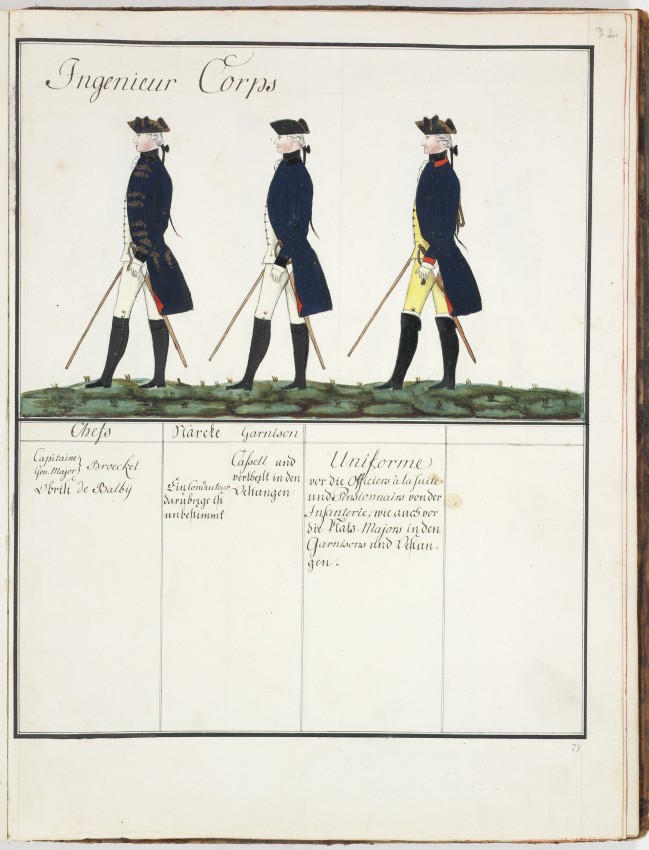 32
Ingenieur Corps
Chefs
Stärcke
Garnison
Capitaine
Gen. Major
Broeckel
Obrist de Balbÿ
Ein Conducteur
das übrige ist
unbestimmt
Cassell und
vertheilt in den
Vestungen
Uniforme
vor die Officiers à la suite
und Pensionnairs von der
Infanterie, wie auch vor
die Platz-Majors in den
Garnisons und Vestun-
gen.